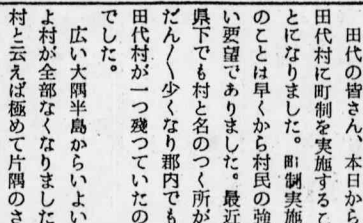 田代の皆さん、本日か
田代村に町制を実施するこ
とになりました。町制実施
のことは早くから村民の強
い要望でありました。最近
県下でも村と名のつく所が
だん〱少くなり郡内でも
田代村が一つ残つていたの
でした。
広い大隅半島からいよい
よ村が全部なくなりました
村と云えば極めて片隅のさ